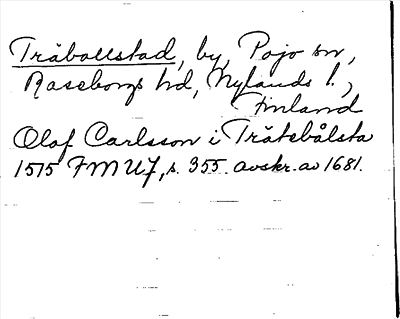 Träbollstad, by, Pojo sn,
Raseborgs hd, Nylands l.,
Finland
Olof Carlsson i Trätebålsta
1515 FMU 7, s. 355. avskr. av 1681.